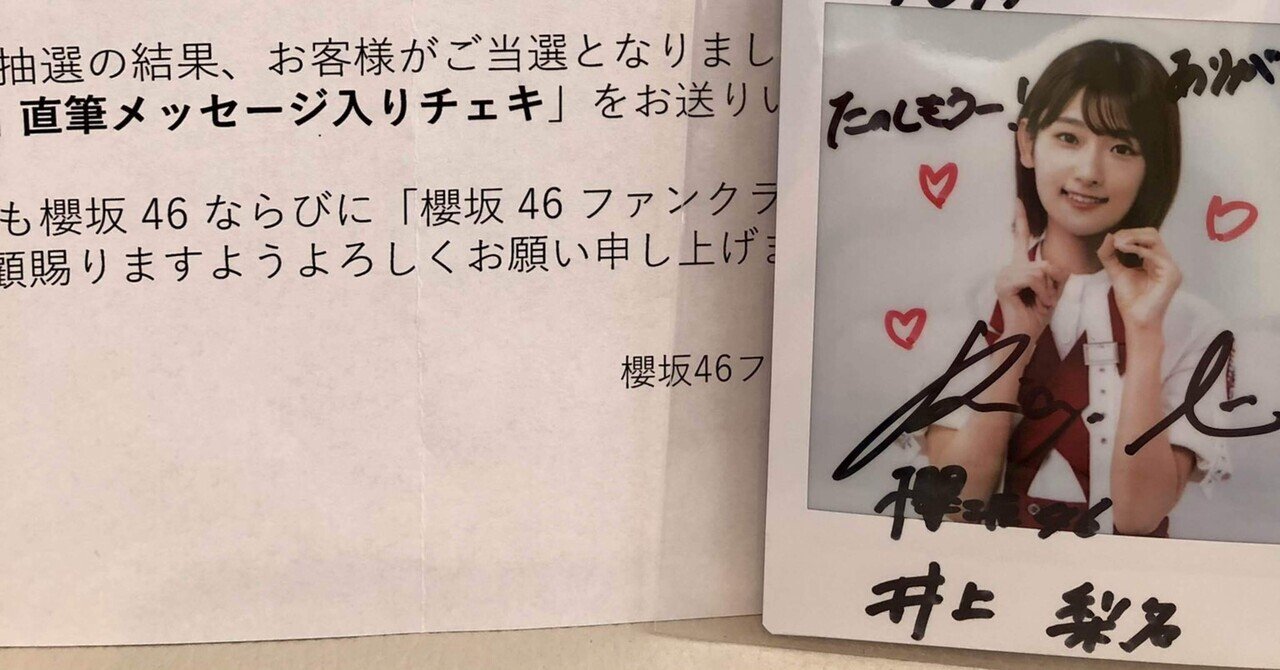 抽選の結果、お客様がご当選となりまし
直筆メッセージ入りチェキ」をお送りい
も櫻坂 46 ならびに「櫻坂 46 ファンクラ
顧賜りますようよろしくお願い申し上げま
櫻坂46フ
ありが
たのしもうー!
櫻坂46
井上 梨名